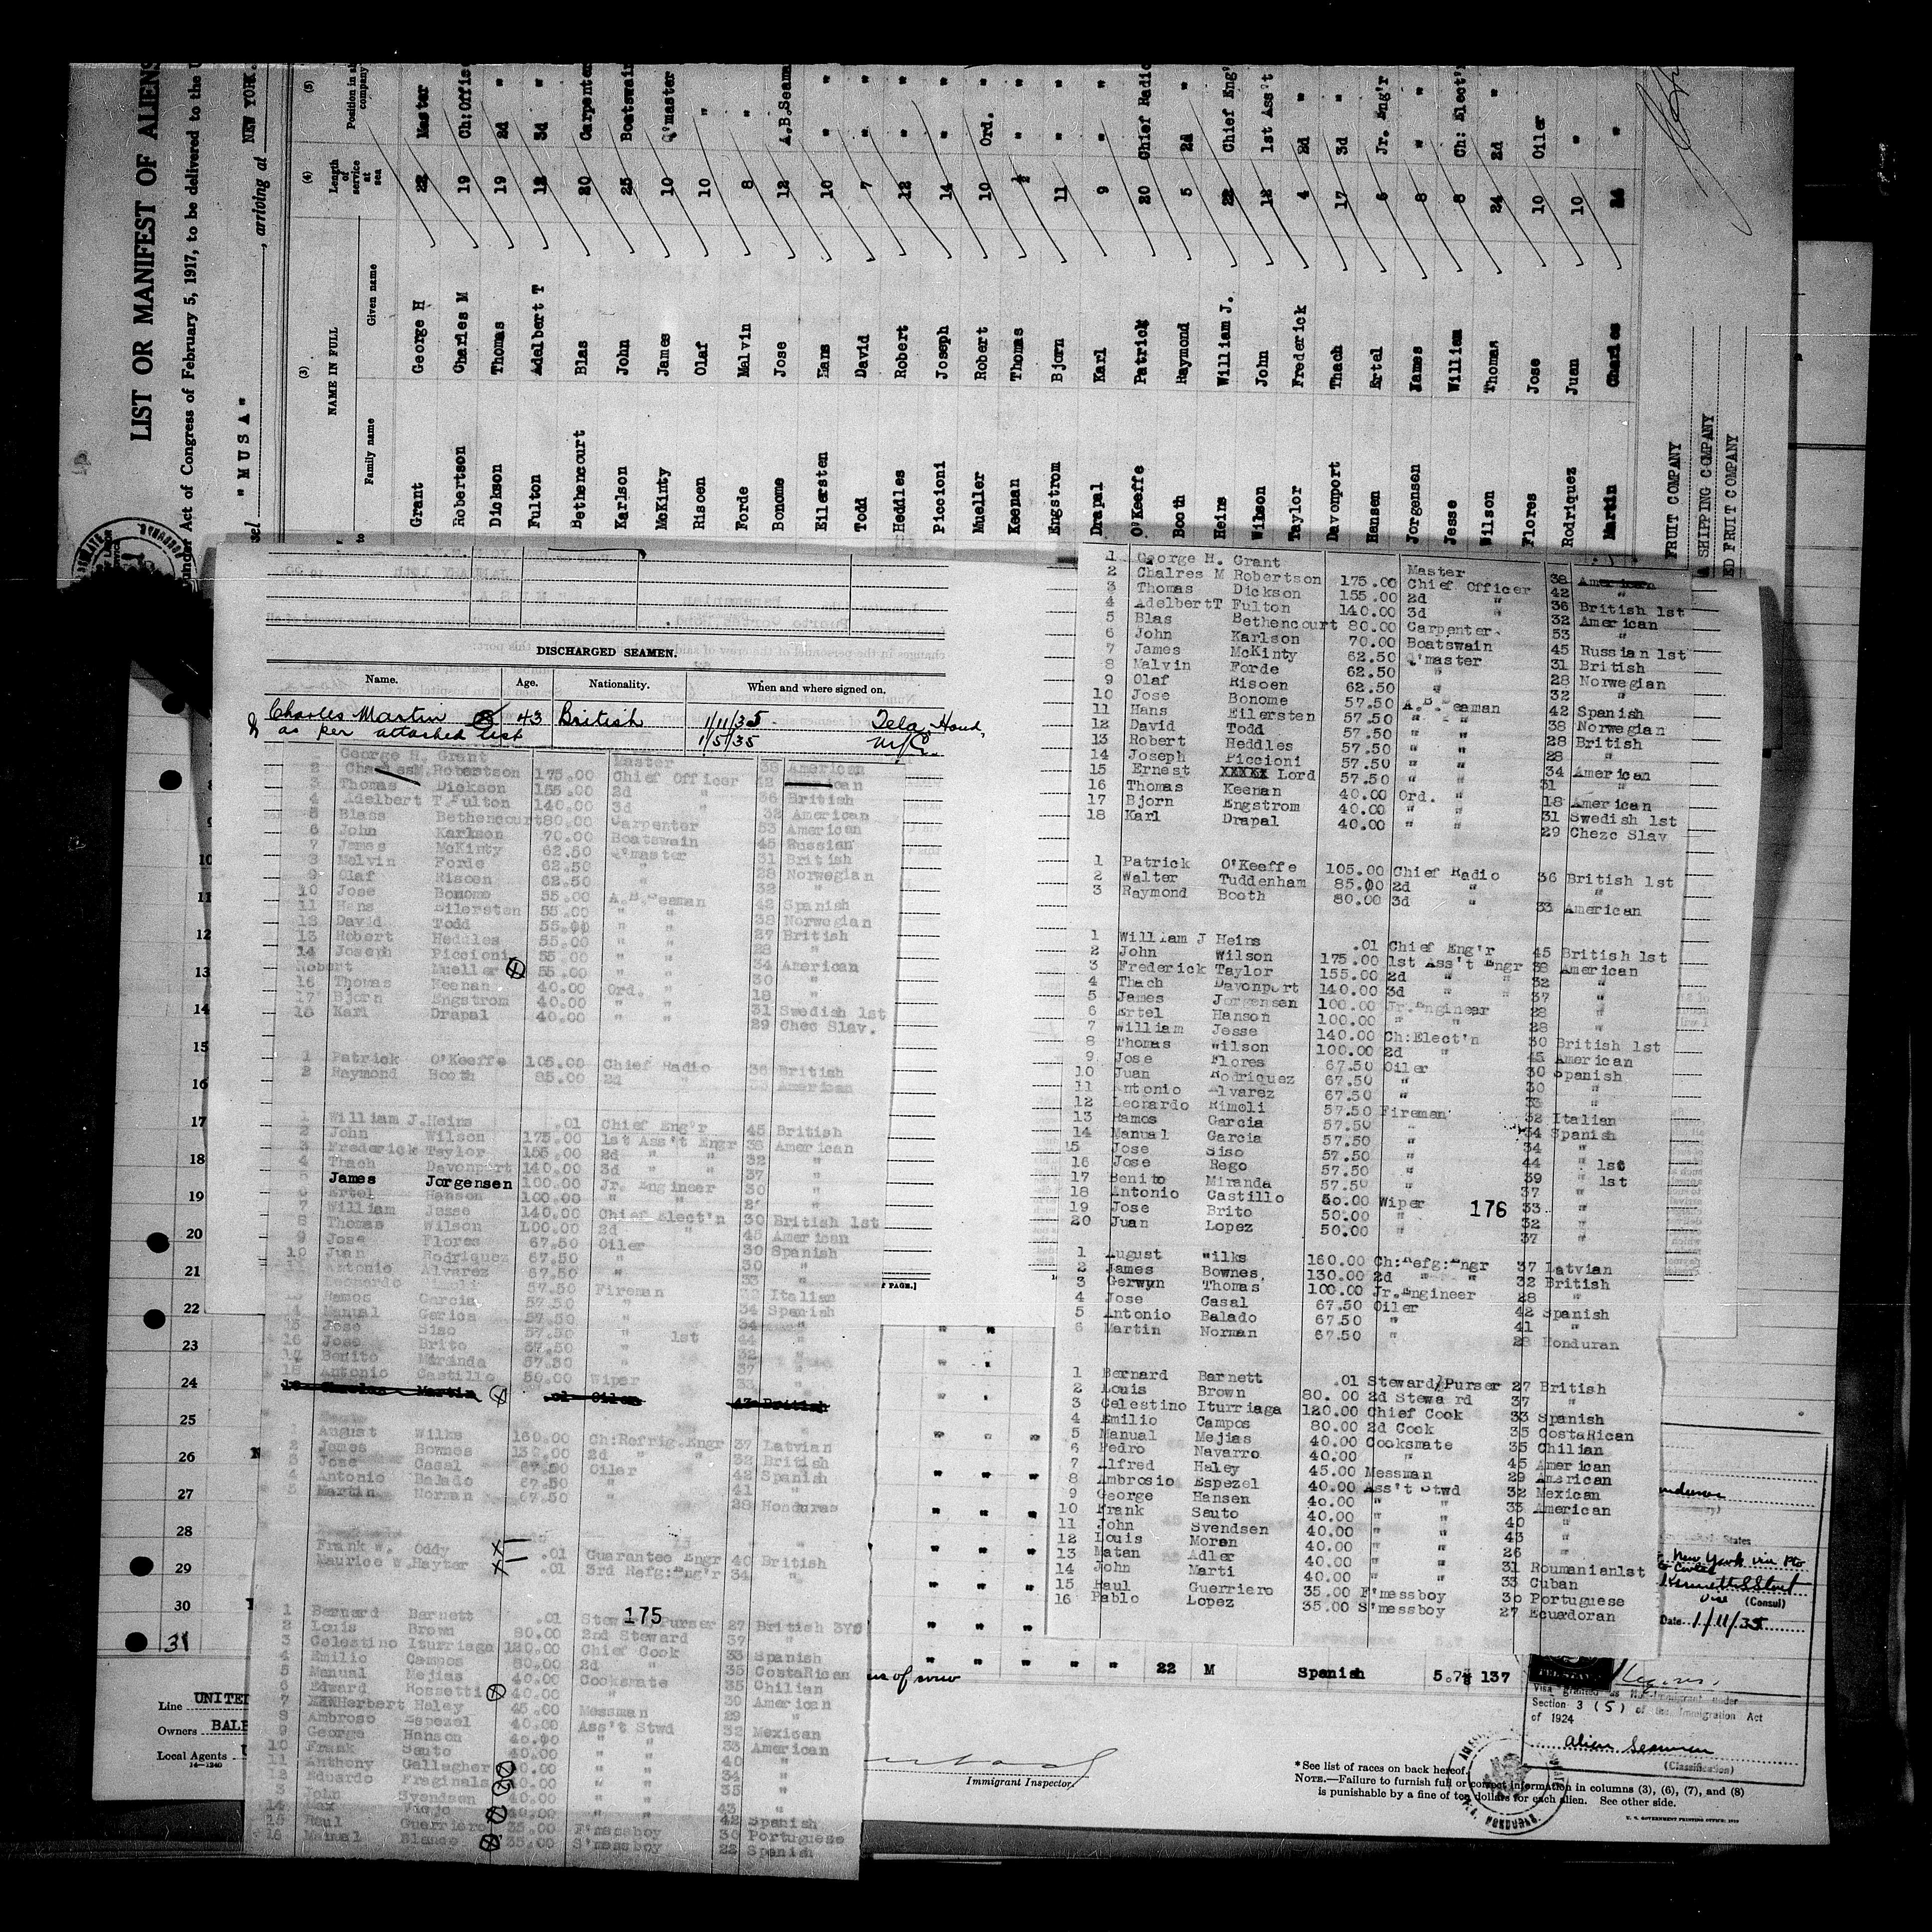 LIST OR MANIFEST OF ALIENS
under Act of Congress of February 5, 1917, to be delivered to the U
"MUSA" , arriving at NEW YORK.
(3) (4) (5)
NAME IN FULL Length of service at sea Position in company
Family name Given name
Grant George H 22 Master
Robertson Charles M 19 Ch:Offic
Dickson Thomas 19 2d "
Fulton Adelbert T 12 3d "
Bethencourt Blas 20 Carpenter
Karlson John 25 Boatswain
McKinty James 10 Q'master
Risoen Olaf 10 "
Forde Malvin 8 "
Bonome Jose 12 A.B.Seama
Eilersten Hans 10 "
Todd David 7 "
Heddles Robert 12 "
Piccioni Joseph 14 "
Mueller Robert 10 Ord. "
Keenan Thomas ½ "
Engstrom Bjorn 11 "
Drapal Karl 9 "
O'Keeffe Patrick 20 Chief Radio
Booth Raymond 5 2d "
Heins William J. 22 Chief Eng'
Wilson John 12 1st Ass't
Taylor Frederick 4 2d "
Davonport Thach 17 3d "
Hansen Ertel 6 Jr. Eng'r
Jorgensen James 8 "
Jesse William 8 Ch: Elect'
Wilson Thomas 24 2d "
Flores Jose 10 Oiler
Rodriquez Juan 10 "
Martin Charles 24 "
FRUIT COMPANY
SHIPPING COMPANY
ED FRUIT COMPANY
DISCHARGED SEAMEN.
Name. Age. Nationality. When and where signed on.
Charles Martin 43 British 1/11/35 Tela, Hond,
as per attached list 1/5/35 N/C
George H. Grant Master 38 American
2 Charles M. Robertson 175.00 Chief Officer 42
3 Thomas Dickson 155.00 2d " 36 British
4 Adelbert T Fulton 140.00 3d " 32 American
5 Blass Bethencourt 80.00 Carpenter 53 American
6 John Karlson 70.00 Boatswain 45 Russian
7 James McKinty 62.50 Q'master 31 British
8 Melvin Forde 62.50 " 28 Norwegian
9 Olaf Risoen 62.50 " 32 "
10 Jose Bonome 55.00 A.B.Seaman 42 Spanish
11 Hans Eilersten 55.00 " " 38 Norwegian
12 David Todd 55.00 " " 27 British
13 Robert Heddles 55.00 " " 28 "
14 Joseph Piccioni 55.00 " " 34 American
Robert Mueller 55.00 " " 30 "
16 Thomas Keenan 40.00 Ord. " 18 "
17 Bjorn Engstrom 40.00 " " 31 Swedish 1st
18 Karl Drapal 40.00 " " 29 Chec Slav.
1 Patrick O'Keeffe 105.00 Chief Radio 36 British
2 Raymond Booth 85.00 2d " American
1 William J. Heins .01 Chief Eng'r 45 British
2 John Wilson 175.00 1st Ass't Engr 38 American
3 Frederick Taylor 155.00 2d " " 32 "
4 Thach Davonport 140.00 3d " " 37 "
5 James Jorgensen 100.00 Jr. Engineer 30 "
6 Ertel Hanson 100.00 " "
7 William Jesse 140.00 Chief Elect'n 30 British 1st
8 Thomas Wilson 100.00 2d " 45 American
9 Jose Flores 67.50 Oiler 30 Spanish
10 Juan Rodriquez 67.50 " 30 "
Antonio Alvarez 67.50 " 33 "
Leonardo Rimoli 57.50 Fireman Italian
13 Ramos Garcia 57.50 " 34 Spanish
14 Manual Garica 57.50 " 34 "
15 Jose Siso 57.50 " 1st 44 "
16 Jose Brito 57.50 " 32 "
17 Benito Miranda 57.50 " 37 "
18 Antonio Castillo 50.00 Wiper 33 "
19 Charles Martin .01 Oiler 43 British
August Wilks 160.00 Ch:Refrig.Engr 37 Latvian
2 James Bownes 130.00 2d " " 32 British
3 Jose Casal 67.50 Oiler 42 Spanish
4 Antonio Balado 67.50 " 41 "
5 Martin Norman 67.50 " 28 Honduras
Frank W. Oddy .01 Guarantee Engr 40 British
Maurice W. Hayter .01 3rd Refg:Eng'r 34 "
175
1 Bernard Barnett .01 Steward/Purser 27 British
2 Louis Brown 80.00 2nd Steward 37 "
3 Celestino Iturriaga 120.00 Chief Cook 33 Spanish
4 Emilio Campos 80.00 2d " 35 CostaRican
5 Manual Mejias 40.00 Cooksmate 35 Chilian
6 Edward Rossetti 40.00 " 30 American
7 Herbert Haley 45.00 Messman 29 "
8 Ambroso Espezel 40.00 Ass't Stwd 32 Mexican
9 George Hanson 40.00 " " 33 American
10 Frank Sauto 40.00 " " 40 "
11 Anthony Gallagher 40.00 " " 34 "
12 Eduardo Fraginals 40.00 " " 35 "
John Svendsen 40.00 " " 43 "
14 Max 40.00 " " 42 Spanish
15 Raul Guerriero 35.00 F'messboy 30 Portuguese
16 Manual Blanco 35.00 S'messboy 22 Spanish
1 George H. Grant Master 38 American
2 Chalres M Robertson 175.00 Chief Officer 42 "
3 Thomas Dickson 155.00 2d " 36 British 1st
4 AdelbertT Fulton 140.00 3d " 32 American
5 Blas Bethencourt 80.00 Carpenter 53 "
6 John Karlson 70.00 Boatswain 45 Russian 1st
7 James McKinty 62.50 Q'master 31 British
8 Malvin Forde 62.50 " 28 Norwegian
9 Olaf Risoen 62.50 " 32 "
10 Jose Bonome 57.50 A.B.Seaman 42 Spanish
11 Hans Eilersten 57.50 " " 38 Norwegian
12 David Todd 57.50 " " 28 British
13 Robert Heddles 57.50 " " 28 "
14 Joseph Piccioni 57.50 " " 34 American
15 Ernest XXXXX Lord 57.50 " " 31 "
16 Thomas Keenan 40.00 Ord. " 18 American
17 Bjorn Engstrom 40.00 " " 31 Swedish 1st
18 Karl Drapal 40.00 " " 29 Chezc Slav
1 Patrick O'Keeffe 105.00 Chief Radio 36 British 1st
2 Walter Tuddenham 85.00 2d " "
3 Raymond Booth 80.00 3d " 33 American
1 William J Heins .01 Chief Eng'r 45 British 1st
2 John Wilson 175.00 1st Ass't Engr 38 American
3 Frederick Taylor 155.00 2d " " 32 "
4 Thach Davonport 140.00 3d " " 37 "
5 James Jorgensen 100.00 Jr.Engineer 28 "
6 Ertel Hanson 100.00 " " 28 "
7 William Jesse 140.00 Ch:Elect'n 30 British 1st
8 Thomas Wilson 100.00 2d " 45 American
9 Jose Flores 67.50 Oiler 30 Spanish
10 Juan Rodriquez 67.50 " 30 "
11 Antonio Alvarez 67.50 " 33 "
12 Leonardo Rimoli 57.50 Fireman 32 Italian
13 Ramos Garcia 57.50 " 34 Spanish
14 Manual Garcia 57.50 " 34 "
15 Jose Siso 57.50 " 44 " 1st
16 Jose Rego 57.50 " 39 " 1st
17 Benito Miranda 57.50 " 37 "
18 Antonio Castillo 50.00 Wiper 33 "
19 Jose Brito 50.00 " 32 "
20 Juan Lopez 50.00 " 37 "
176
1 August Wilks 160.00 Ch:Refg:Engr 37 Latvian
2 James Bownes, 130.00 2d " " 32 British
3 Gerwyn Thomas 100.00 Jr.Engineer 28 "
4 Jose Casal 67.50 Oiler 42 Spanish
5 Antonio Balado 67.50 " 41 "
6 Martin Norman 67.50 " 28 Honduran
1 Bernard Barnett .01 Steward/Purser 27 British
2 Louis Brown 80.00 2d Steward 37 "
3 Celestino Iturriaga 120.00 Chief Cook 33 Spanish
4 Emilio Campos 80.00 2d Cook 35 CostaRican
5 Manual Mejias 40.00 Cooksmate 35 Chilian
6 Pedro Navarro 40.00 " 45 American
7 Alfred Haley 45.00 Messman 29 American
8 Ambrosio Espezel 40.00 Ass't Stwd 32 Mexican
9 George Hansen 40.00 " " 33 American
10 Frank Sauto 40.00 " " 40 "
11 John Svendsen 40.00 " " 43 "
12 Louis Moran 40.00 " " 26 "
13 Matan Adler 40.00 " " 31 Roumanian1st
14 John Marti 40.00 " " 33 Cuban
15 Raul Guerriero 35.00 F'messboy 30 Portuguese
16 Pablo Lopez 35.00 S'messboy 27 Ecuadoran
10
11
12
13
14
15
16
17
18
19
20
21
22
23
24
25
26
27
28
29
30
31
PAGE.]
" " " " " 22 M Spanish 5.7½ 137
Line UNITE
Owners BALB
Local Agents U
14—1240
Immigrant Inspector.
*See list of races on back hereof.
NOTE.—Failure to furnish full or correct information in columns (3), (6), (7), and (8)
is punishable by a fine of ten dollars for each alien. See other side.
U. S. GOVERNMENT PRINTING OFFICE
States
New York via Pto
Cortes
Vice (Consul)
Date 1/11/35
Visa granted as Non-Immigrant under
Section 3 (5) of the Immigration Act
of 1924
alien seaman
(Classification)
HONDURAS.